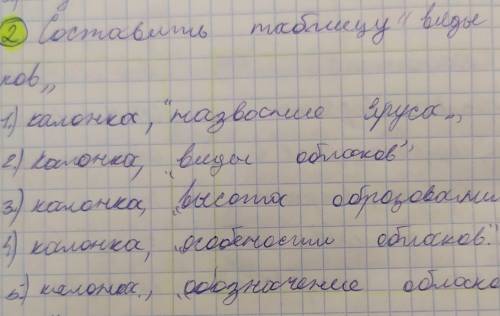 2 Составить таблицу "виды
ков„
1) калонка, "название Яруса„
2) калонка, "виды облаков"
3) калонка, „высота образовани
4) калонка, „особеностии облаков"
5) калонка, „обозначение облако